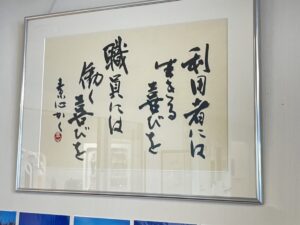 利用者には
生きる
喜びを
職員には
働く
喜びを